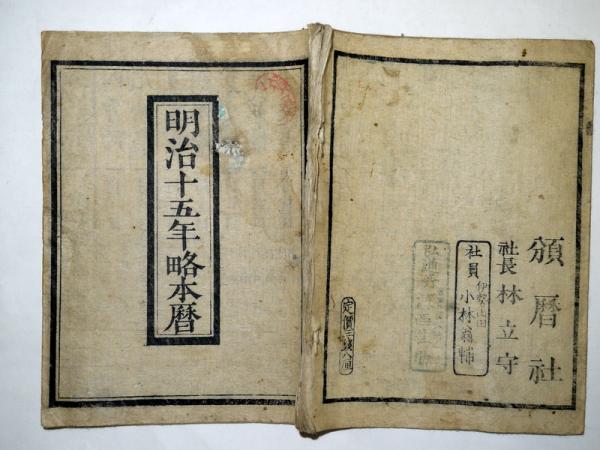 明治十五年略本暦
頒暦社
社長 林立守
社員 伊勢山田
小林
定價三錢八厘